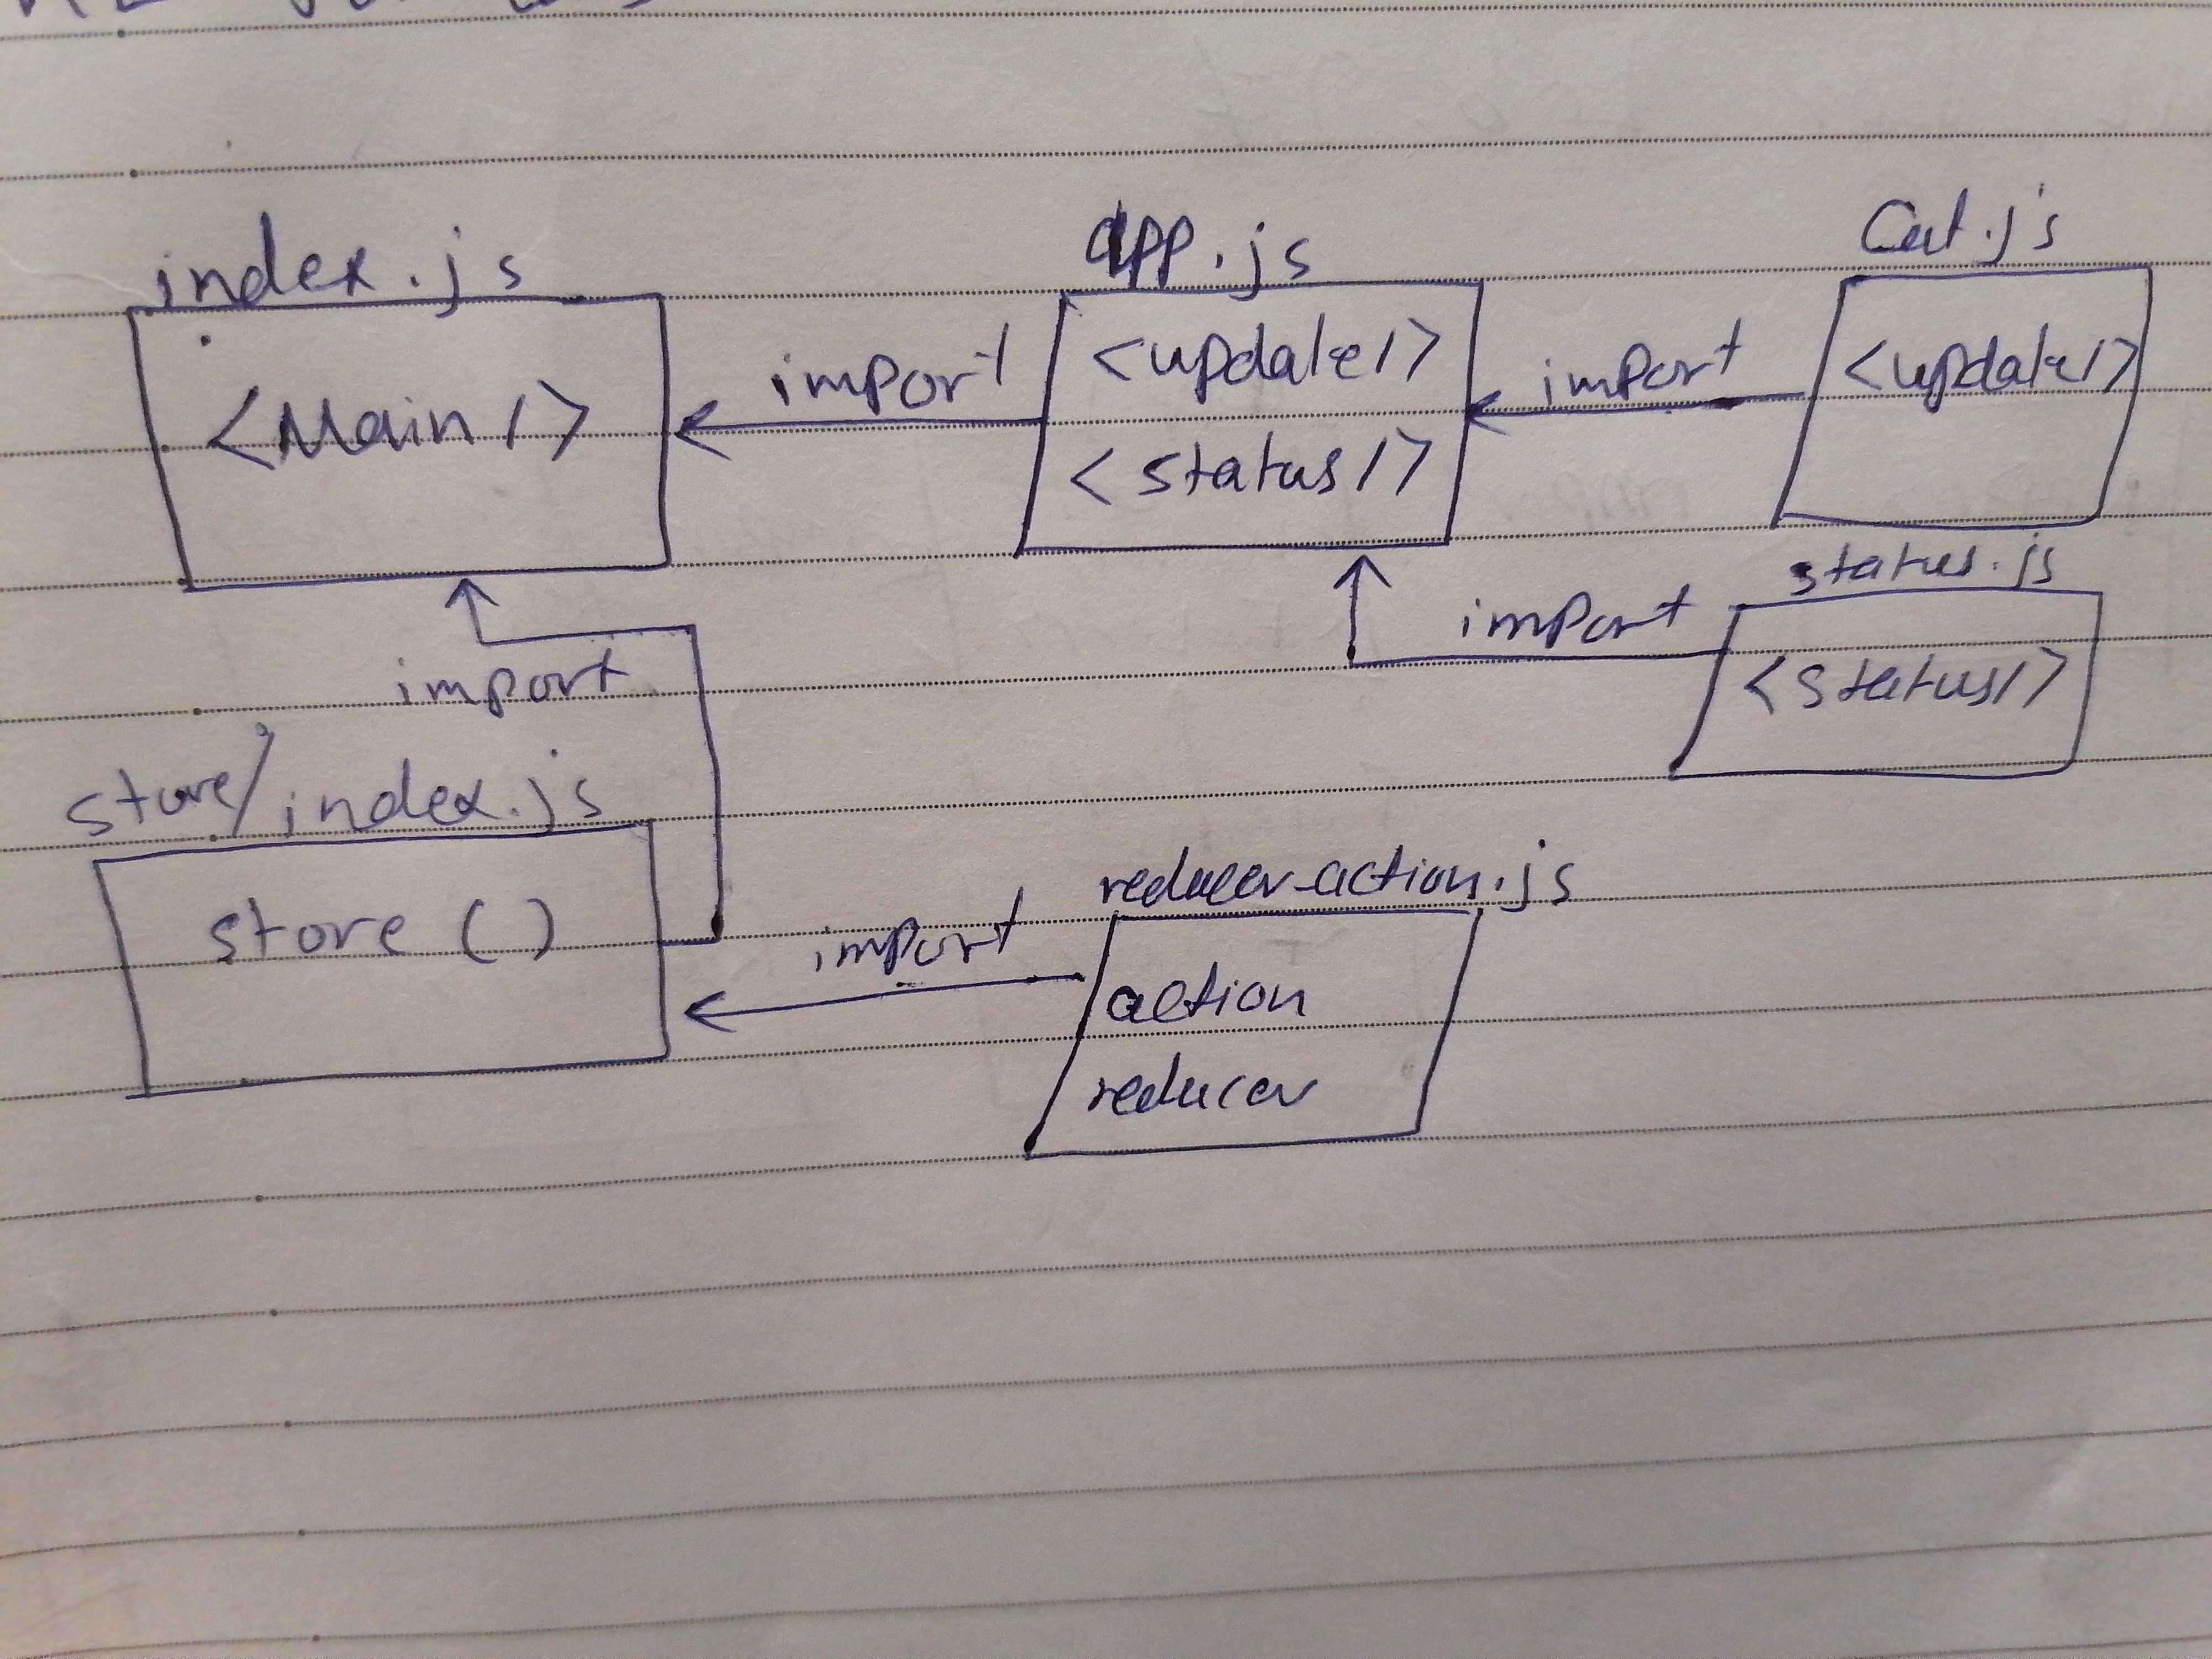 index.js
<Main/>
import
app.js
<update/>
<status/>
import
Cat.js
<update/>
import
status.js
<status/>
import
store/index.js
store ()
import
reducer-action.js
action
reducer